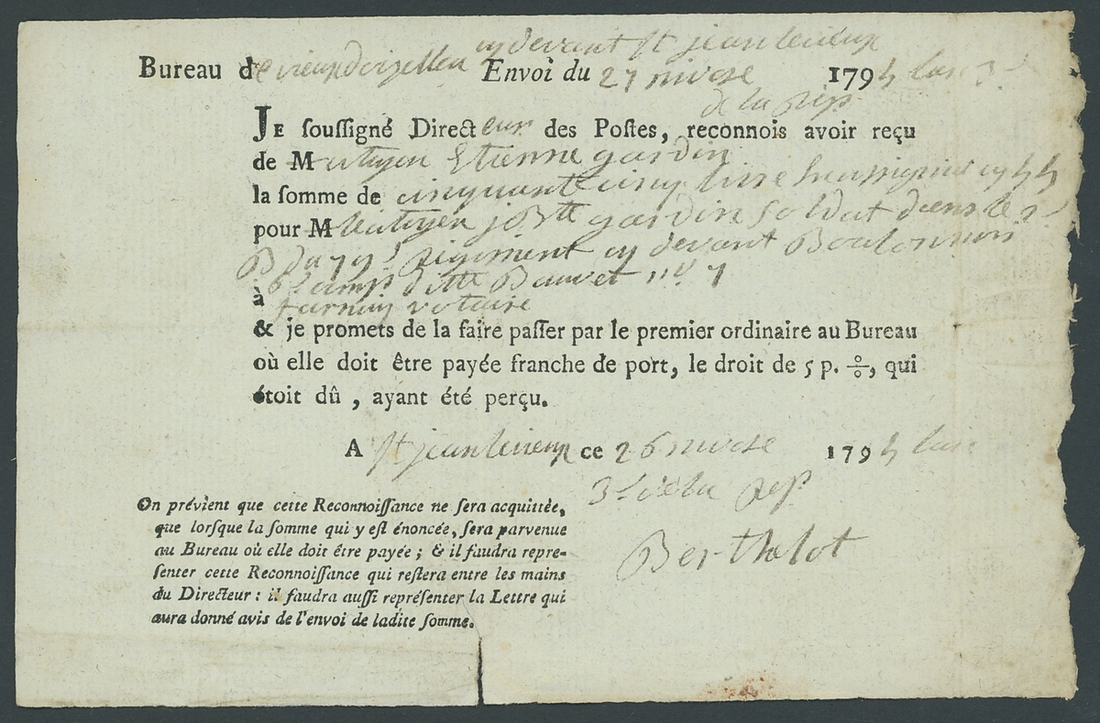 cy devant St jean le vieux
Bureau de vieux d'oizellon Envoi du 27 nivose 1795 lan 3
de la Rép
JE ſouſſigné Directeur des Poſtes, reconnois avoir reçu
de M citoyen Etienne gardin
la ſomme de cinquante cinq livre en assignat cy 55
pour M le citoyen j Btte gardin Soldat dans le 2
B du 79 Régiment cy devant Boulonnois
à
& je promets de la faire paſſer par le premier ordinaire au Bureau
où elle doit être payée franche de port, le droit de 5 p. %, qui
étoit dû , ayant été perçu.
A St jean le vieux ce 26 nivose 1795 lan
3e de la Rep
Berthelot
On prévient que cette Reconnoiſſance ne ſera acquittée,
que lorſque la ſomme qui y eſt énoncée, ſera parvenue
au Bureau où elle doit être payée ; & il faudra repre-
ſenter cette Reconnoiſſance qui reſtera entre les mains
du Directeur : il faudra auſſi repréſenter la Lettre qui
aura donné avis de l'envoi de ladite ſomme.